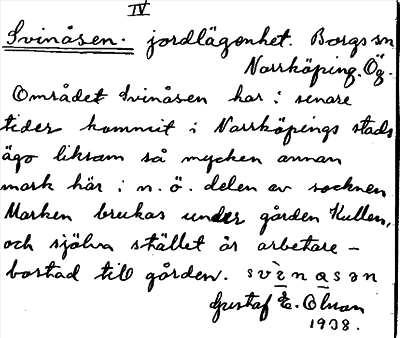 IV
Svinåsen. jordlägenhet. Borgs sn
Norrköping. Ög.
Området Svinåsen har i senare
tider kommit i Norrköpings stads
ägo liksom så mycken annan
mark här i n. ö. delen av socknen
Marken brukas under gården Kullen,
och själva stället är arbetare-
bostad till gården. svìnạsən
Gustaf E. Olson
1938.